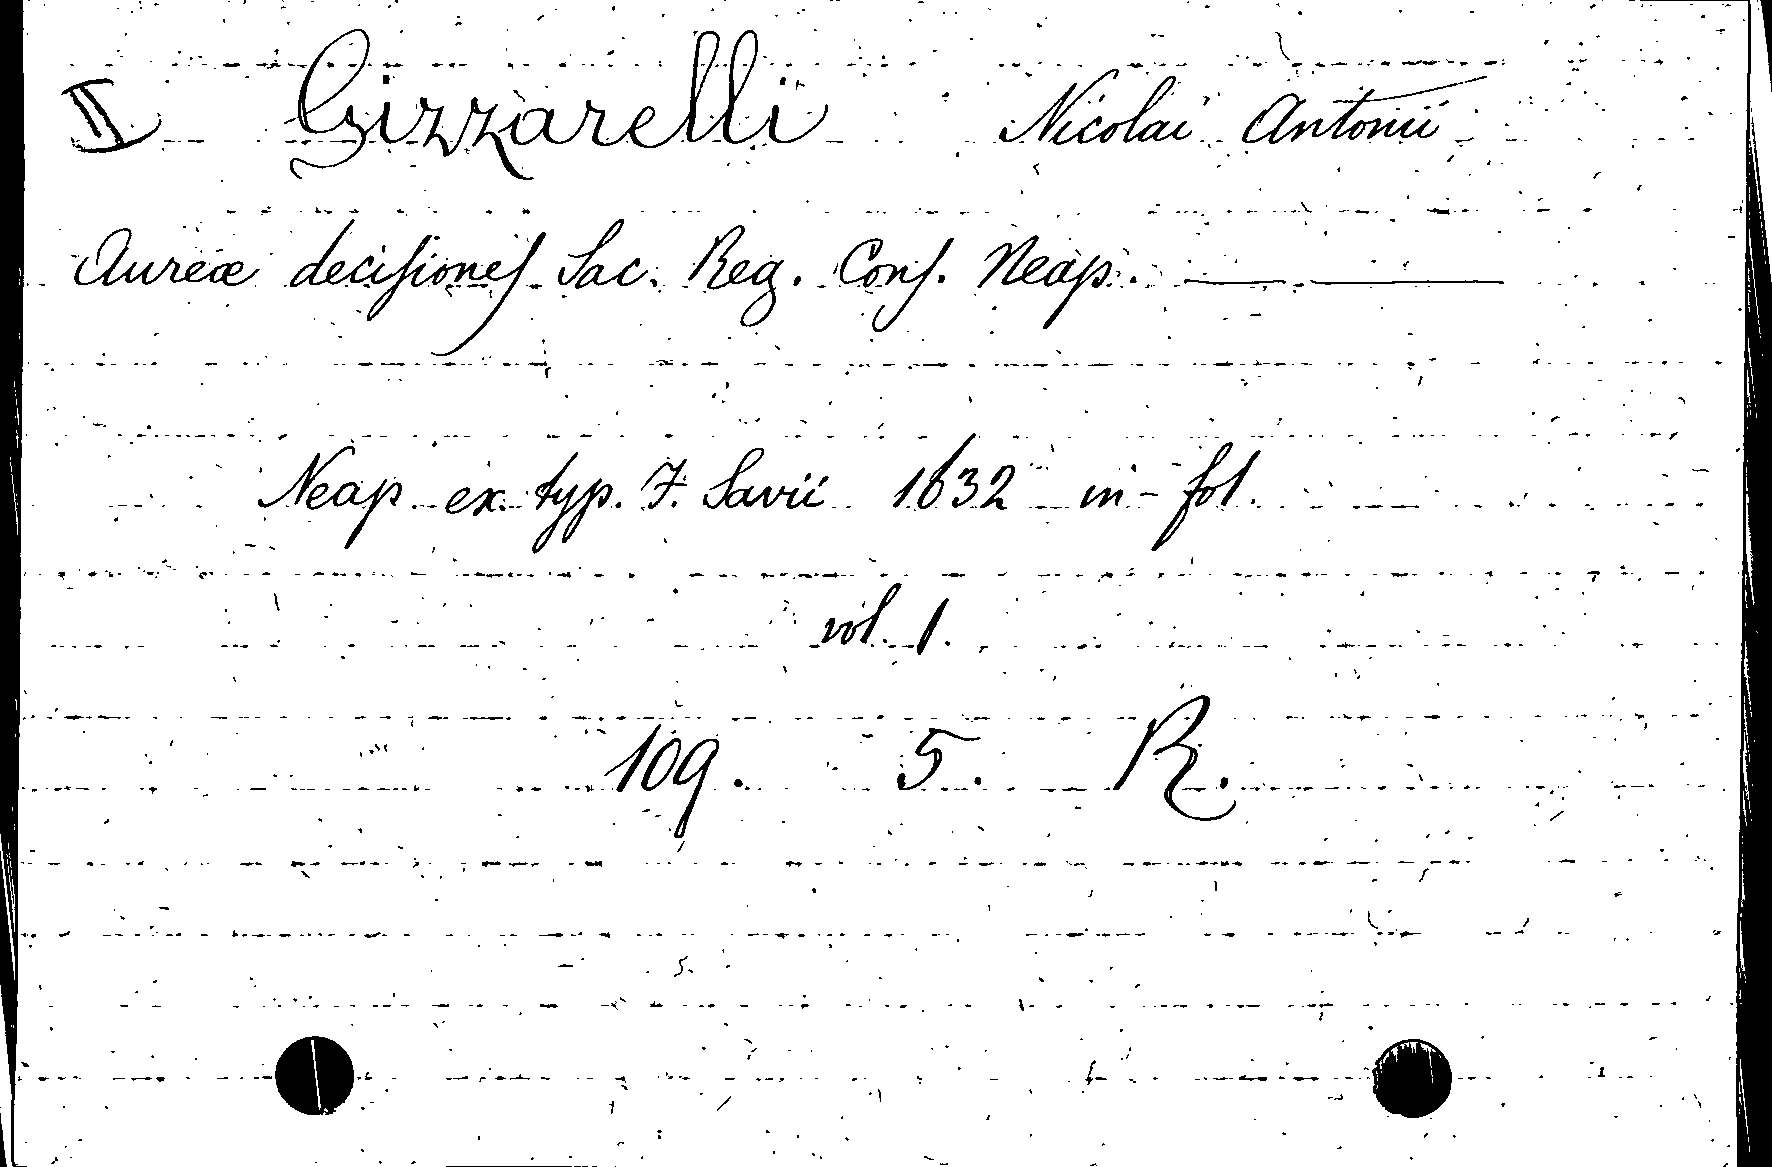 II Gizzarelli Nicolai Antonii
Aureæ decisiones Sac. Reg. Cons. Neap.
Neap. ex. typ. J. Savii 1632 in-fol.
vol. 1.
109. 5. R.